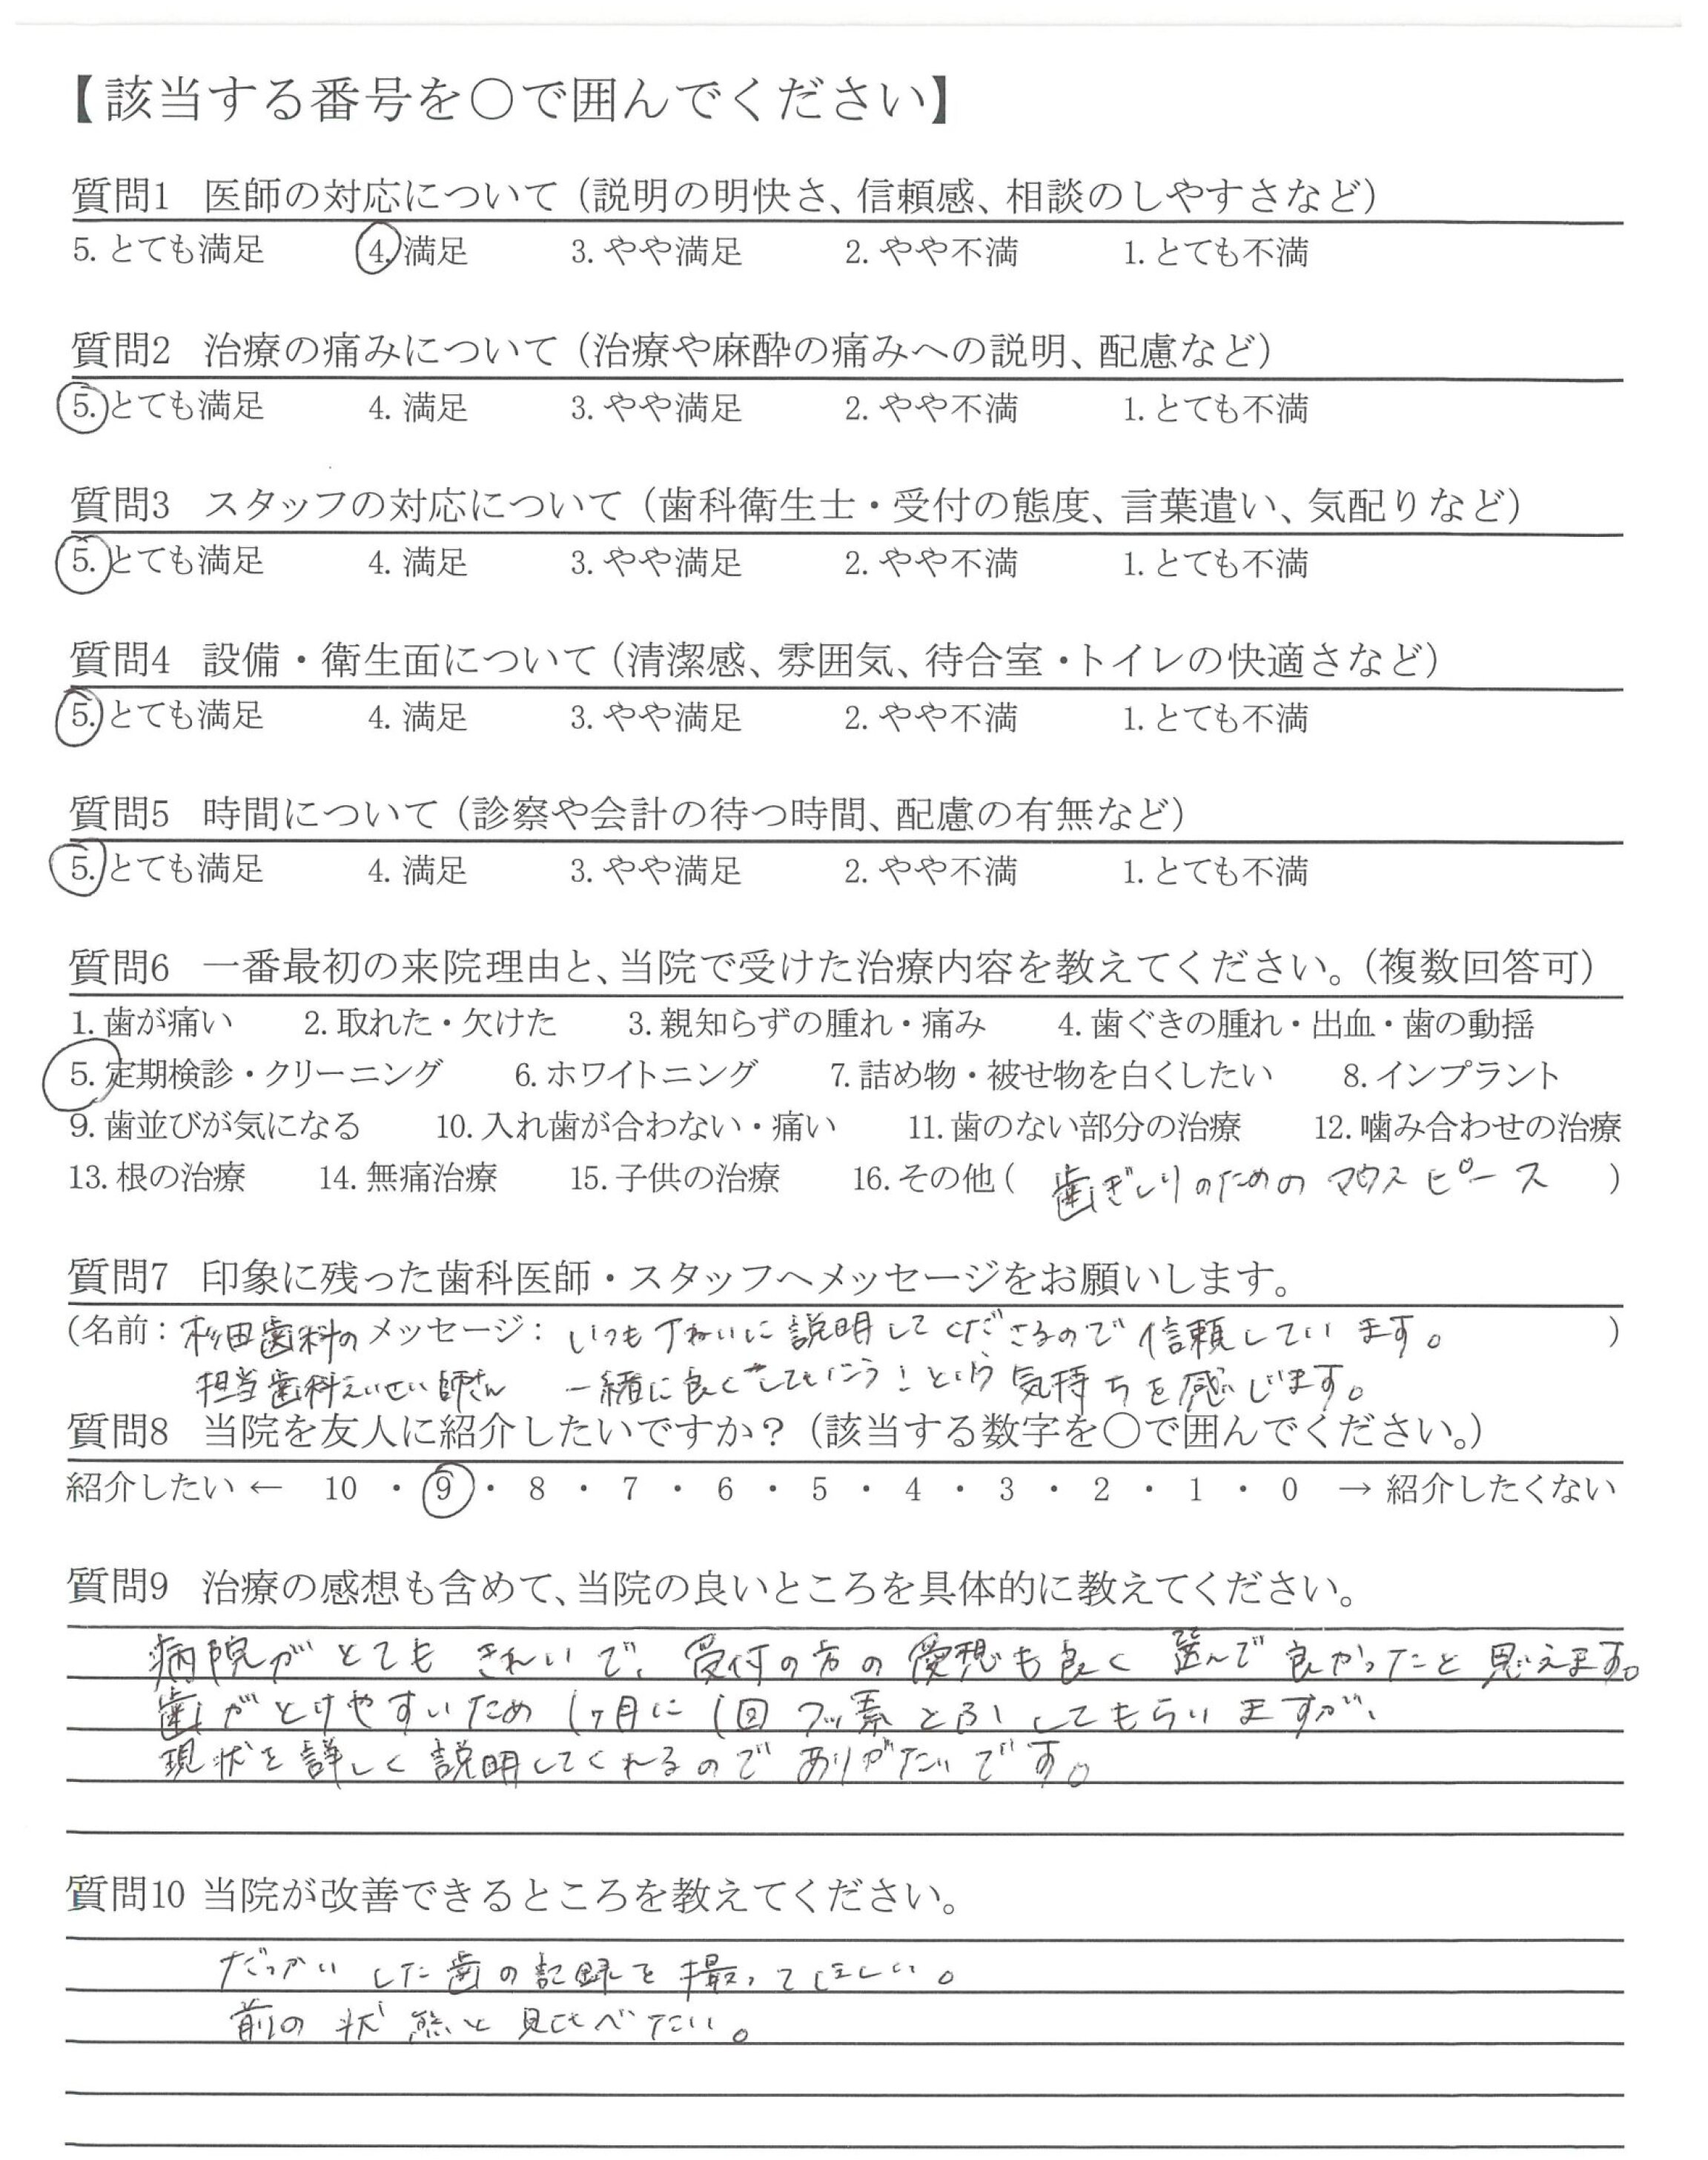 【該当する番号を○で囲んでください】
質問1 医師の対応について（説明の明快さ、信頼感、相談のしやすさなど）
5. とても満足 4. 満足 3. やや満足 2. やや不満 1. とても不満
質問2 治療の痛みについて（治療や麻酔の痛みへの説明、配慮など）
5. とても満足 4. 満足 3. やや満足 2. やや不満 1. とても不満
質問3 スタッフの対応について（歯科衛生士・受付の態度、言葉遣い、気配りなど）
5. とても満足 4. 満足 3. やや満足 2. やや不満 1. とても不満
質問4 設備・衛生面について（清潔感、雰囲気、待合室・トイレの快適さなど）
5. とても満足 4. 満足 3. やや満足 2. やや不満 1. とても不満
質問5 時間について（診察や会計の待つ時間、配慮の有無など）
5. とても満足 4. 満足 3. やや満足 2. やや不満 1. とても不満
質問6 一番最初の来院理由と、当院で受けた治療内容を教えてください。（複数回答可）
1. 歯が痛い 2. 取れた・欠けた 3. 親知らずの腫れ・痛み 4. 歯ぐきの腫れ・出血・歯の動揺
5. 定期検診・クリーニング 6. ホワイトニング 7. 詰め物・被せ物を白くしたい 8. インプラント
9. 歯並びが気になる 10. 入れ歯が合わない・痛い 11. 歯のない部分の治療 12. 噛み合わせの治療
13. 根の治療 14. 無痛治療 15. 子供の治療 16. その他（ 歯ぎしりのための マウスピース ）
質問7 印象に残った歯科医師・スタッフへメッセージをお願いします。
（名前： 杉田歯科の メッセージ： いつも丁ねいに説明してくださるので信頼しています。 ）
担当歯科えいせい師さん 一緒に良くしていこう！という気持ちを感じます。
質問8 当院を友人に紹介したいですか？（該当する数字を○で囲んでください。）
紹介したい ← 10 ・ 9 ・ 8 ・ 7 ・ 6 ・ 5 ・ 4 ・ 3 ・ 2 ・ 1 ・ 0 → 紹介したくない
質問9 治療の感想も含めて、当院の良いところを具体的に教えてください。
病院がとても きれいで、受付の方の愛想も良く 選んで良かったと思えます。
歯がとけやすいため 1ヶ月に1回 フッ素とふしてもらいますが、
現状を詳しく説明してくれるので ありがたいです。
質問10 当院が改善できるところを教えてください。
だっかいした歯の記録を撮ってほしい。
前の状態と見比べたい。